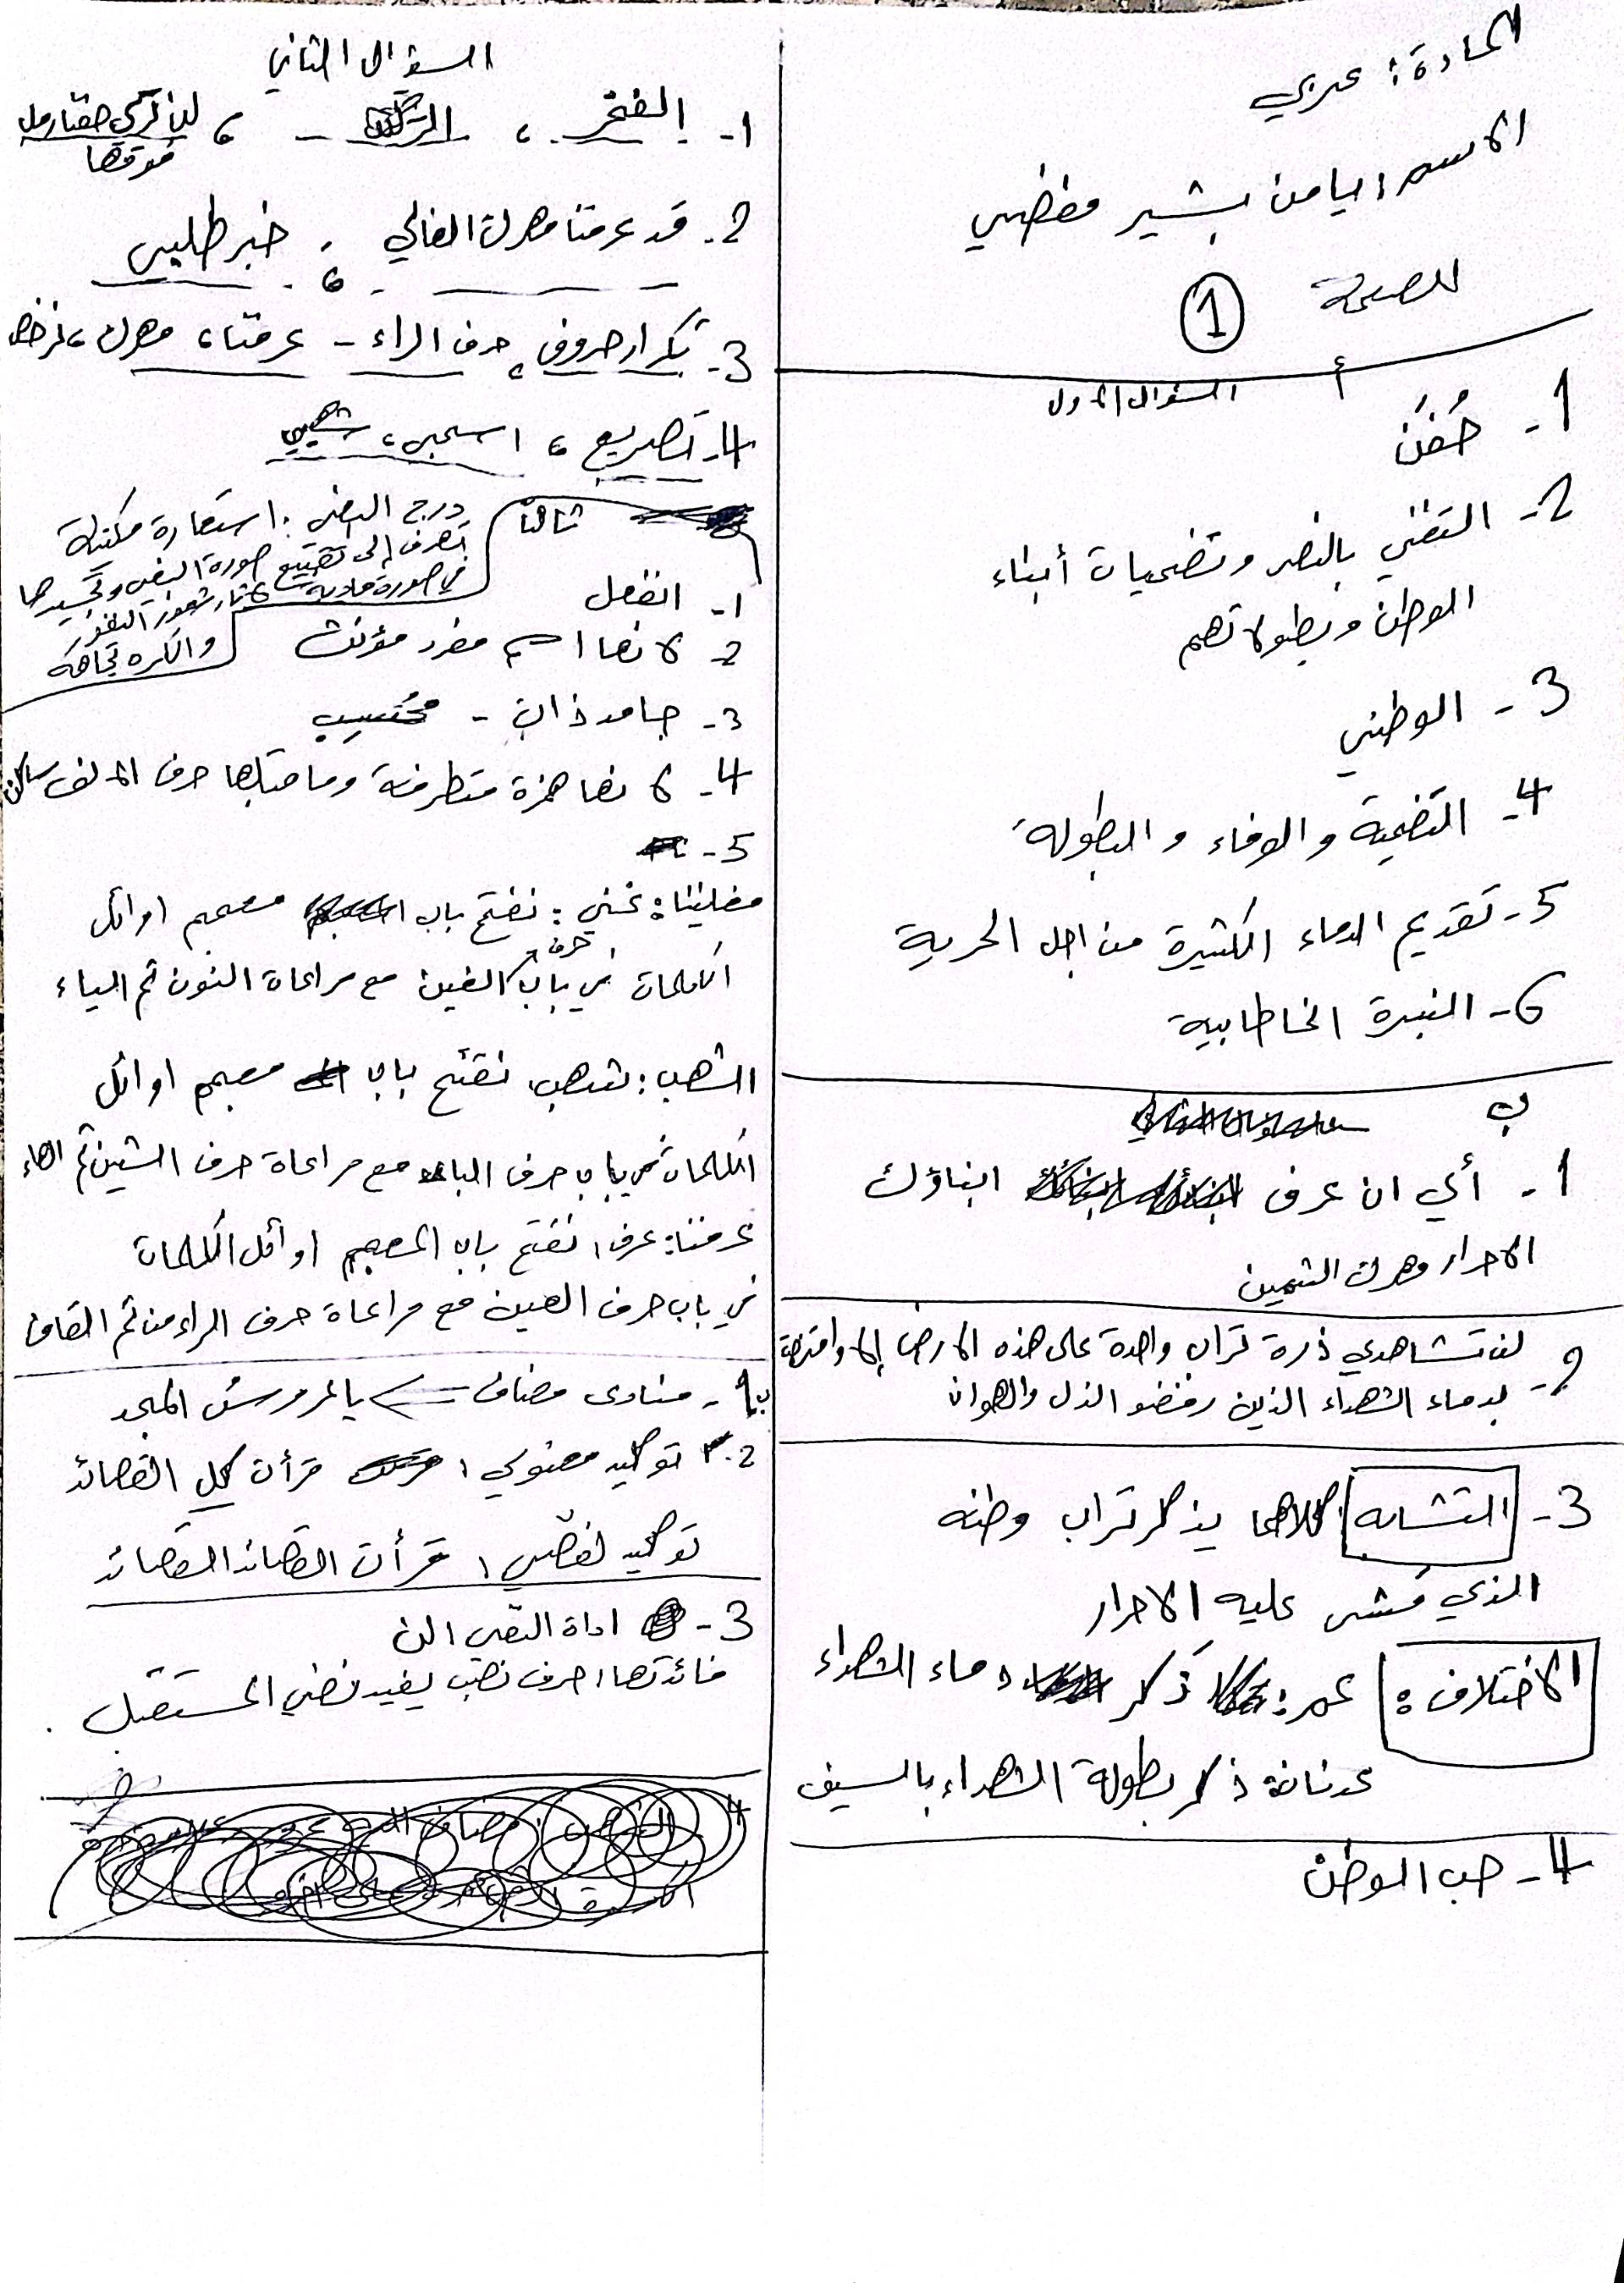 المادة: عربي
الاسم: يامن بشير مفضي
الصفحة ①
السؤال الاول
أ
1- حُفَن
2- التغني بالنصر وتضحيات أبناء
الوطن وبطولاتهم
3- الوطني
4- التضحية والوفاء والبطولة
5- تقديم الدماء الكثيرة من اجل الحرية
6- النبرة الخاطابية
ب
1- أي ان عرف ابناؤك
الاحرار مهرك الثمين
2- لن تشاهدي ذرة تراب واحدة على هذه الارض إلا وامتزجت
بدماء الشهداء الذين رفضو الذل والهوان
3- التشابه كلاهما يذكر تراب وطنه
الذي مشى عليه الاحرار
الاختلاف: عمر: ذكر دماء الشهداء
عدنان: ذكر بطولة الشهداء بالسيف
4- حب الوطن
السؤال الثاني
1- الفخر، لن تري حفنة رمل
فوقها
2- قد عرفنا مهرك الغالي، خبر طلبي
3- تكرار حروف، حرف الراء - عرفنا، مهرك، نرخص
4- تصريع، اسحبي، شهبي
ثالثا
درج البغي: استعارة مكنية
تهدف إلى تقبيح صورة البغي وتجسيدها
في صورة مادية لاثار شعور النفور
والكره تجاهه
1- انفعل
2- لانها اسم مفرد مؤنث
3- جامد ذات - مُحتسِب
4- لانها همزة متطرفة وما قبلها حرف الالف ساكن
5-
مغانينا: غني: نفتح باب معجم اوائل
الكلمات في باب حرف الغين مع مراعاة النون ثم الياء
الشهب: شهب، نفتح باب معجم اوائل
الكلمات في باب حرف الباء مع مراعاة حرف الشين ثم الهاء
عرفنا: عرف، نفتح باب المعجم اوائل الكلمات
في باب حرف العين مع مراعاة حرف الراء من ثم الفاء
ب 1- منادى مضاف <= يا عروس المجد
2- توكيد معنوي: قرأت كل القصائد
توكيد لفظي: قرأت القصائد القصائد
3- اداة النفي: لن
فائدتها: حرف نصب يفيد نفي المستقبل.